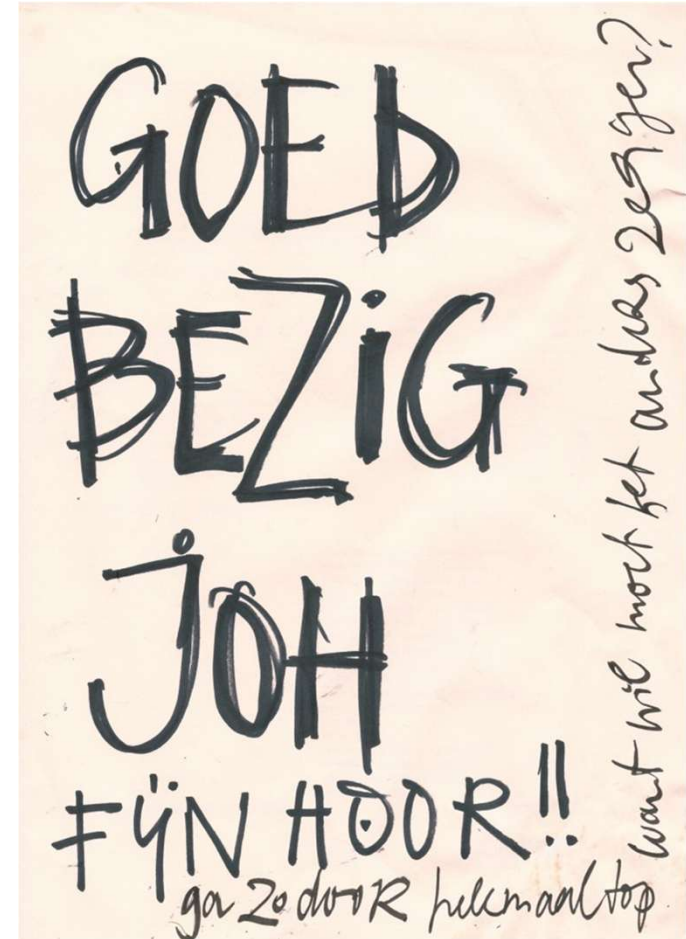 GOED
BEZiG
JOH
FŸN HOOR!!
ga zo door helemaal top
want wie moet het anders zeggen?